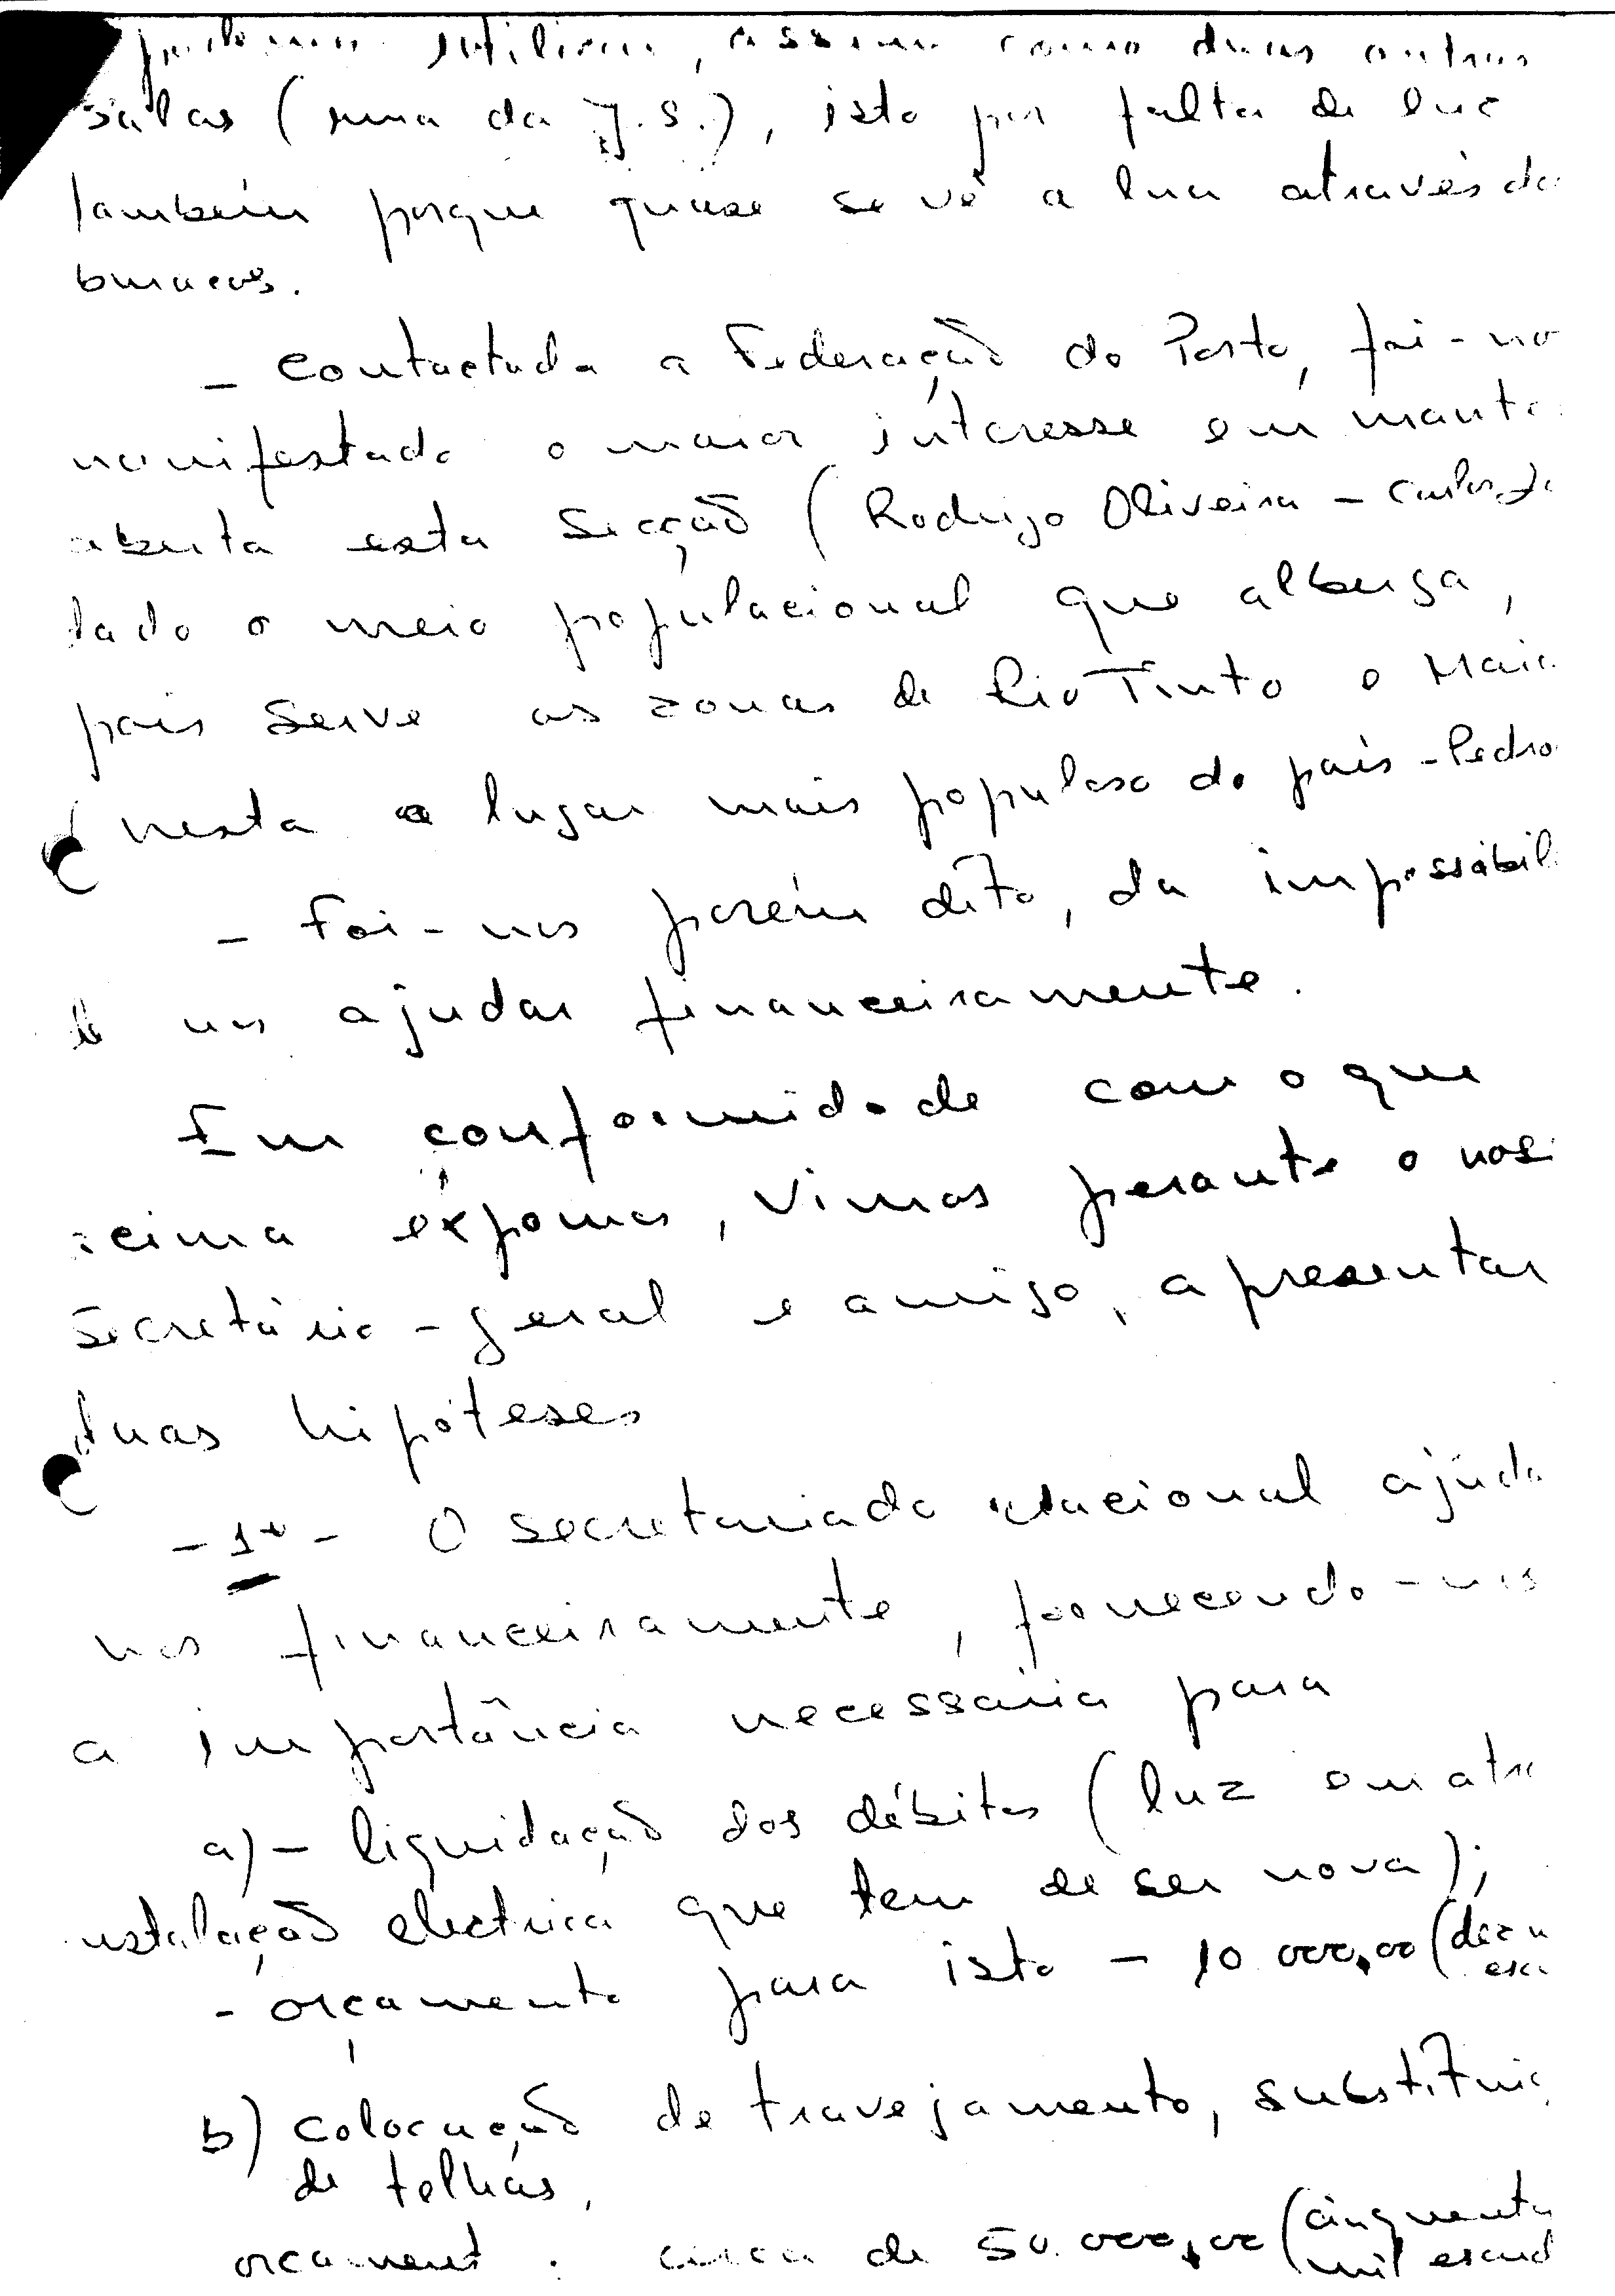 podemos utilizar, assim como duas outras
salas (uma da J.S.), isto por falta de luz
também porque quase se vê a lua através do
buracos.
- Contactada a Federação do Porto, foi-no
manifestado o maior interesse em mante
aberta esta Secção (Rodrigo Oliveira - Carlos
dado o meio populacional que alberga,
pois serve as zonas de Rio Tinto e Maia
nesta o lugar mais populoso do país - Pedro
- Foi-nos porém dito, da impossibil
de nos ajudar financeiramente.
Em conformidade com o que
acima expomos, vimos perante o nos
Secretário-geral e amigo, apresentar
duas hipóteses
- 1ª - O Secretariado Nacional ajuda
nos financeiramente, fornecendo-nos
a importância necessária para
a) - liquidação dos débitos (luz
nstalação electrica que tem de ser nova);
- orçamento para isto - 10.000,00 (dez
esc
b) Colocação de travejamento, substitui
de telhas,
orcament : cerca de 50.000,00 (cinquenta
mil escud